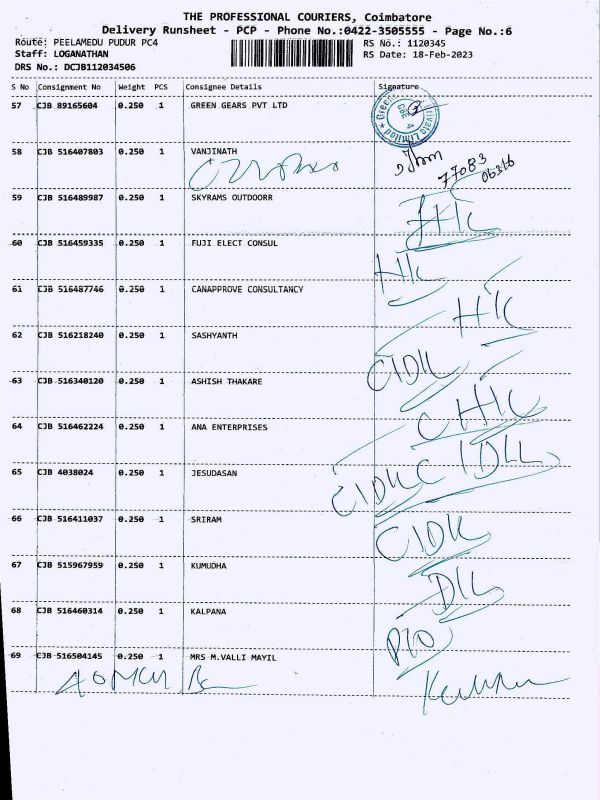 THE PROFESSIONAL COURIERS, Coimbatore
Delivery Runsheet - PCP - Phone No.:0422-3505555 - Page No.:6
Route: PEELAMEDU PUDUR PC4 RS No.: 1120345
Staff: LOGANATHAN RS Date: 18-Feb-2023
DRS No.: DCJB112034506
S No Consignment No Weight PCS Consignee Details Signature
57 CJB 89165604 0.250 1 GREEN GEARS PVT LTD
58 CJB 516407803 0.250 1 VANJINATH
77083
06316
59 CJB 516489987 0.250 1 SKYRAMS OUTDOORR
60 CJB 516459335 0.250 1 FUJI ELECT CONSUL
61 CJB 516487746 0.250 1 CANAPPROVE CONSULTANCY
62 CJB 516218240 0.250 1 SASHYANTH
63 CJB 516340120 0.250 1 ASHISH THAKARE
64 CJB 516462224 0.250 1 ANA ENTERPRISES
65 CJB 4038024 0.250 1 JESUDASAN
66 CJB 516411037 0.250 1 SRIRAM
67 CJB 515967959 0.250 1 KUMUDHA
68 CJB 516460314 0.250 1 KALPANA
69 CJB 516504145 0.250 1 MRS M.VALLI MAYIL